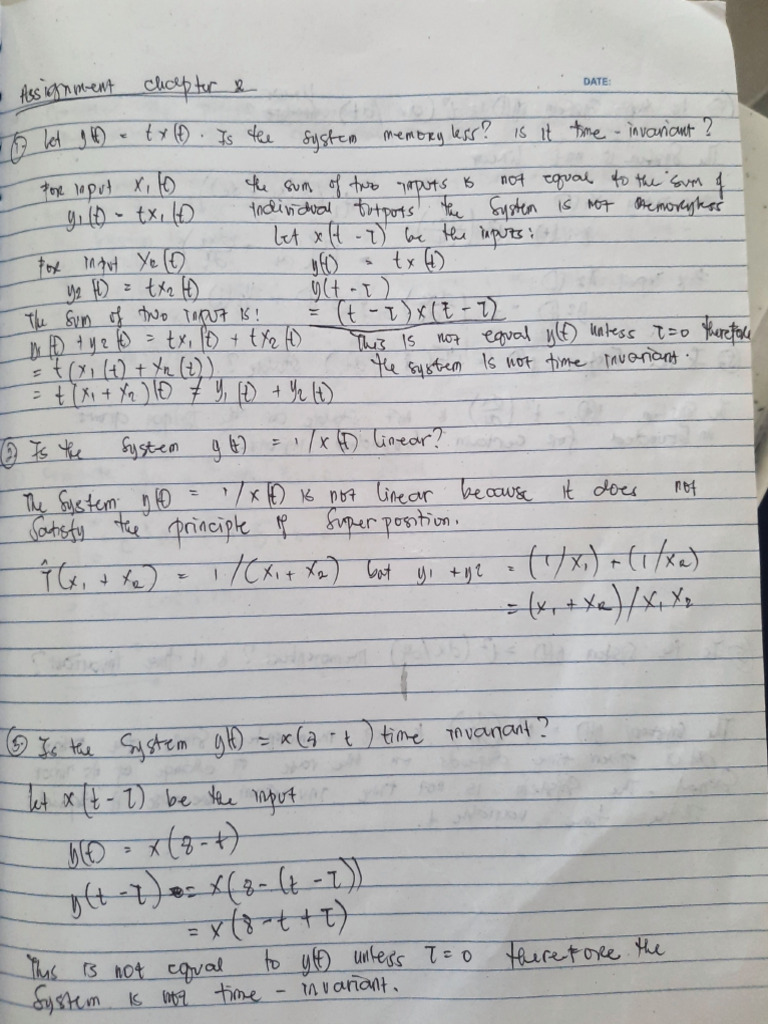 Assignment chapter 2
DATE:
① let y(t) = tx(t). Is the system memoryless? is it time-invariant?
For input x₁(t)
y₁(t) = tx₁(t)
For input x₂(t)
y₂(t) = tx₂(t)
The sum of two input is:
y₁(t) + y₂(t) = tx₁(t) + tx₂(t)
= t(x₁(t) + x₂(t))
= t(x₁ + x₂)(t) ≠ y₁(t) + y₂(t)
the sum of two inputs is not equal to the sum of
individual outputs the System is not memoryless
let x(t - τ) be the inputs:
y(t) = tx(t)
y(t - τ)
= (t - τ)x(t - τ)
This is not equal y(t) unless τ=0 therefore
the system is not time invariant.
② Is the System y(t) = 1/x(t) linear?
The System y(t) = 1/x(t) is not linear because it does not
Satisfy the principle of Super position.
T̂(x₁ + x₂) = 1/(x₁ + x₂) but y₁ + y2 = (1/x₁) + (1/x₂)
= (x₁ + x₂)/x₁x₂
⑤ Is the System y(t) = x(8 - t) time invariant?
let x(t - τ) be the input
y(t) = x(8 - t)
y(t - τ) = x(8 - (t - τ))
= x(8 - t + τ)
This is not equal to y(t) unless τ=0 therefore the
System is not time - invariant.